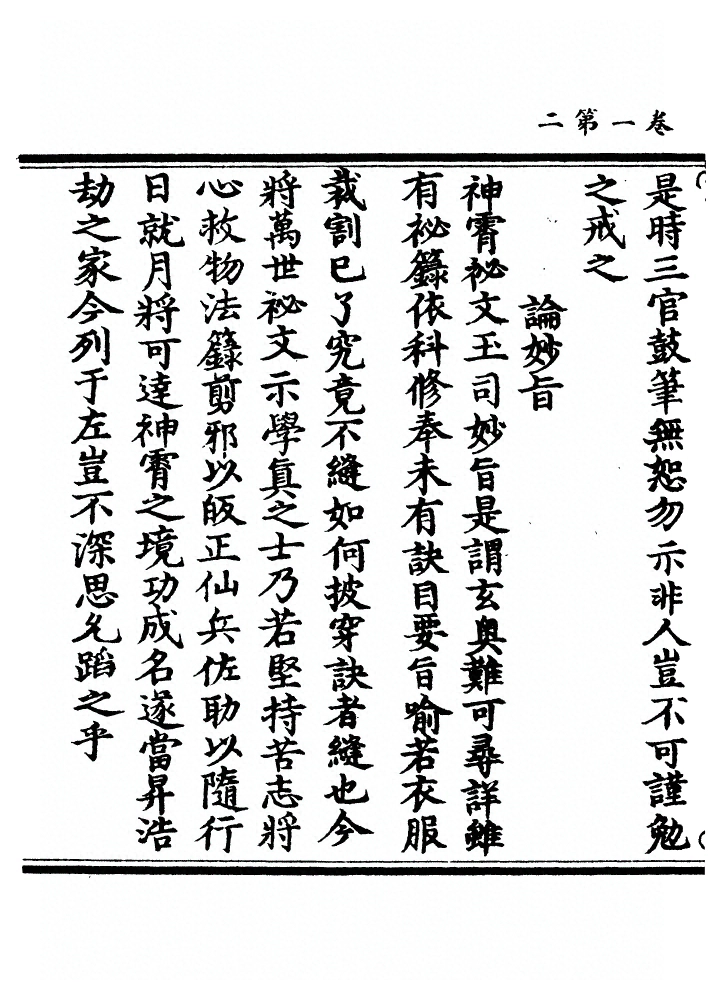 二第一卷
是時三官鼓筆無恕勿示非人豈不可謹勉
之戒之
論妙旨
神霄祕文玉司妙旨是謂玄奥難可尋詳雖
有祕籙依科修奉未有訣目要旨喻若衣服
裁割已了究竟不縫如何披穿訣者縫也今
將萬世祕文示學真之士乃若堅持苦志將
心救物法籙剪邪以皈正仙兵佐助以隨行
日就月將可達神霄之境功成名遂當昇浩
劫之家今列于左豈不深思允蹈之乎